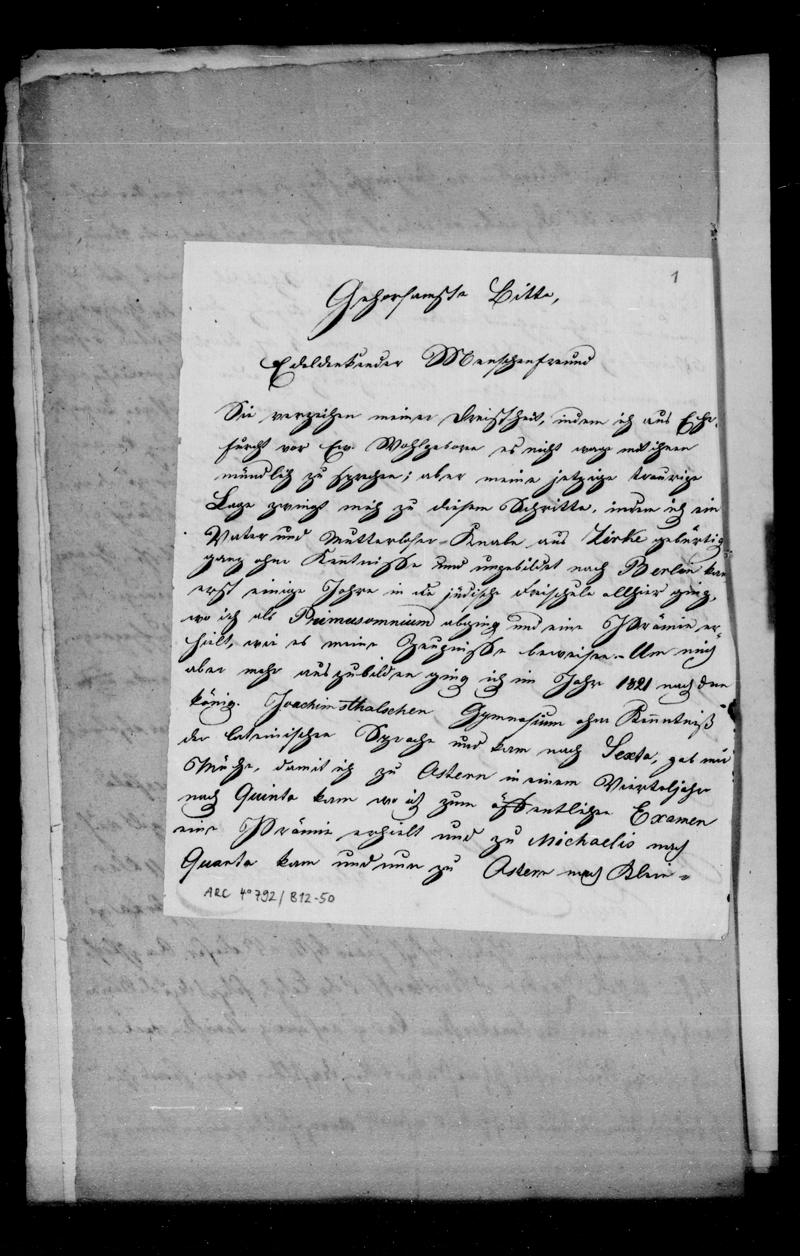 1
Gehorsamste Bitte,
Edeldenkender Menschenfreund
Sie verzeihen meiner Dreistheit, indem ich aus Ehr-
furcht vor Ew. Wohlgeboren es nicht wage mit ihnen
mündlich zu sprechen; aber meine jetzige traurige
Lage zwingt mich zu diesem Schritte, indem ich ein
Vater und Mutterloser-Knabe aus Zirke gebürtig
ganz ohne Kentnisse und ungebildet nach Berlin kam
erst einige Jahre in die jüdische Freischule allhier ging,
wo ich als Primusomnium abging und eine Prämie er-
hielt, wie es meine Zeugnisse beweisen. Um mich
aber mehr auszubilden ging ich im Jahr 1821 nach dem
könig. Joachimsthalschen Gymnasium ohne Kenntniß
der lateinischen Sprache und kam nach Sexta, gab mir
Mühe, damit ich zu Ostern in einem Vierteljahr
nach Quinta kam wo ich zum öffentlichen Examen
eine Prämie erhielt und zu Michaelis nach
Quarta kam und nun zu Ostern nach Klein-
ARC 4° 792/B12-50